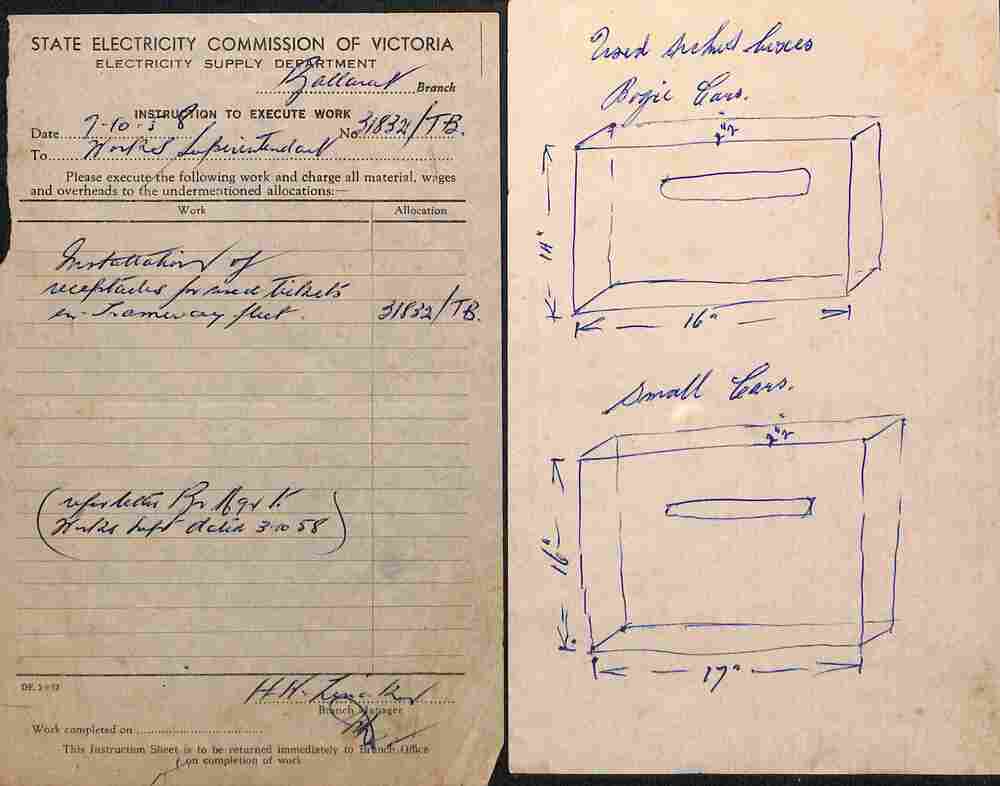 STATE ELECTRICITY COMMISSION OF VICTORIA
ELECTRICITY SUPPLY DEPARTMENT
Ballarat Branch
INSTRUCTION TO EXECUTE WORK
Date 7-10-58 No 31832/TB.
To Works Superintendant
Please execute the following work and charge all material, wages
and overheads to the undermentioned allocations:—
Work Allocation
Installation of
receptacles for used tickets
on Tramway fleet. 31832/TB.
(refer letter Br Mgr to
Works Supt dated 3-10-58)
H.W.
Branch Manager
Work completed on
This Instruction Sheet is to be returned immediately to Branch Office
on completion of work
Used ticket boxes
Bogie Cars.
2"
14"
16"
Small Cars.
2"
16"
17"